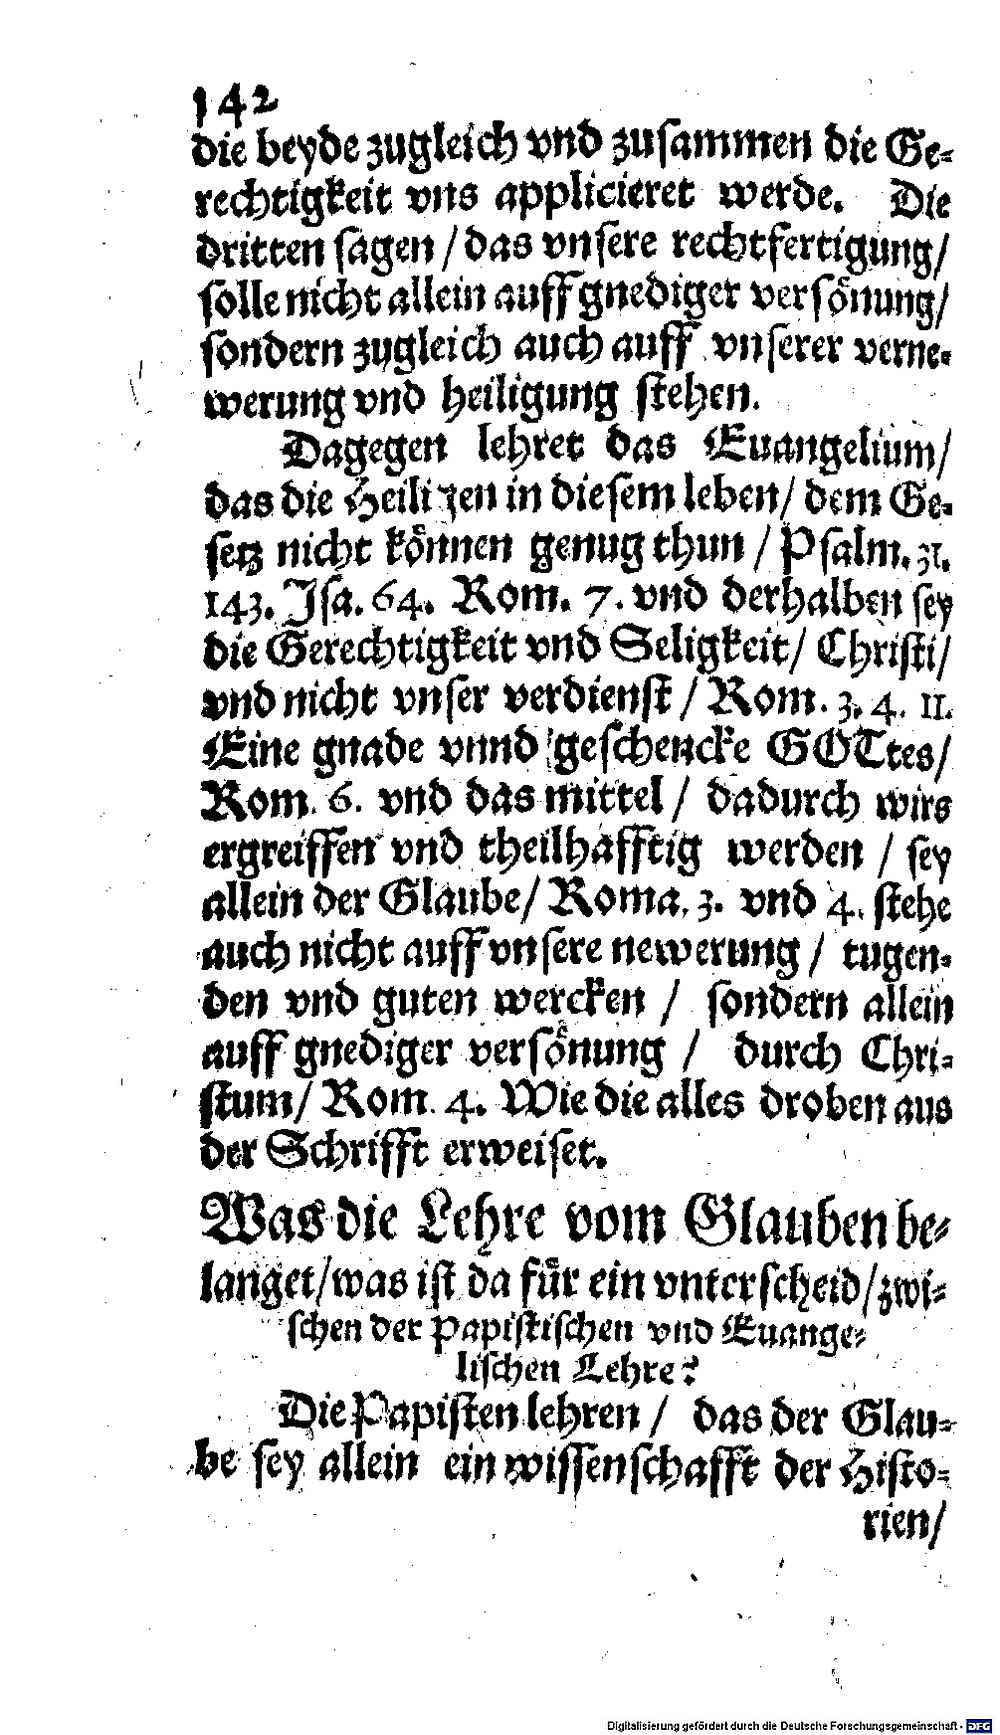 142
die beyde zugleich vnd zusammen die Ge-
rechtigkeit vns applicieret werde. Die
dritten sagen / das vnsere rechtfertigung/
solle nicht allein auff gnediger versönung/
sondern zugleich auch auff vnserer verne-
werung vnd heiligung stehen.
Dagegen lehret das Euangelium/
das die Heiligen in diesem leben/ dem Ge-
setz nicht können genug thun / Psalm. 31.
143. Jsa. 64. Rom. 7. vnd derhalben sey
die Gerechtigkeit vnd Seligkeit/ Christi/
vnd nicht vnser verdienst / Rom. 3. 4. 11.
Eine gnade vnnd geschencke GOTtes/
Rom. 6. vnd das mittel / dadurch wirs
ergreiffen vnd theilhafftig werden / sey
allein der Glaube/ Roma. 3. vnd 4. stehe
auch nicht auff vnsere newerung / tugen-
den vnd guten wercken / sondern allein
auff gnediger versönung / durch Chri-
stum/ Rom. 4. Wie die alles droben aus
der Schrifft erweiset.
Was die Lehre vom Glauben be-
langet/was ist da für ein vnterscheid/zwi-
schen der Papistischen vnd Euange-
lischen Lehre?
Die Papisten lehren / das der Glau-
be sey allein ein wissenschafft der Histo-
rien/
Digitalisierung gefördert durch die Deutsche Forschungsgemeinschaft - DFG